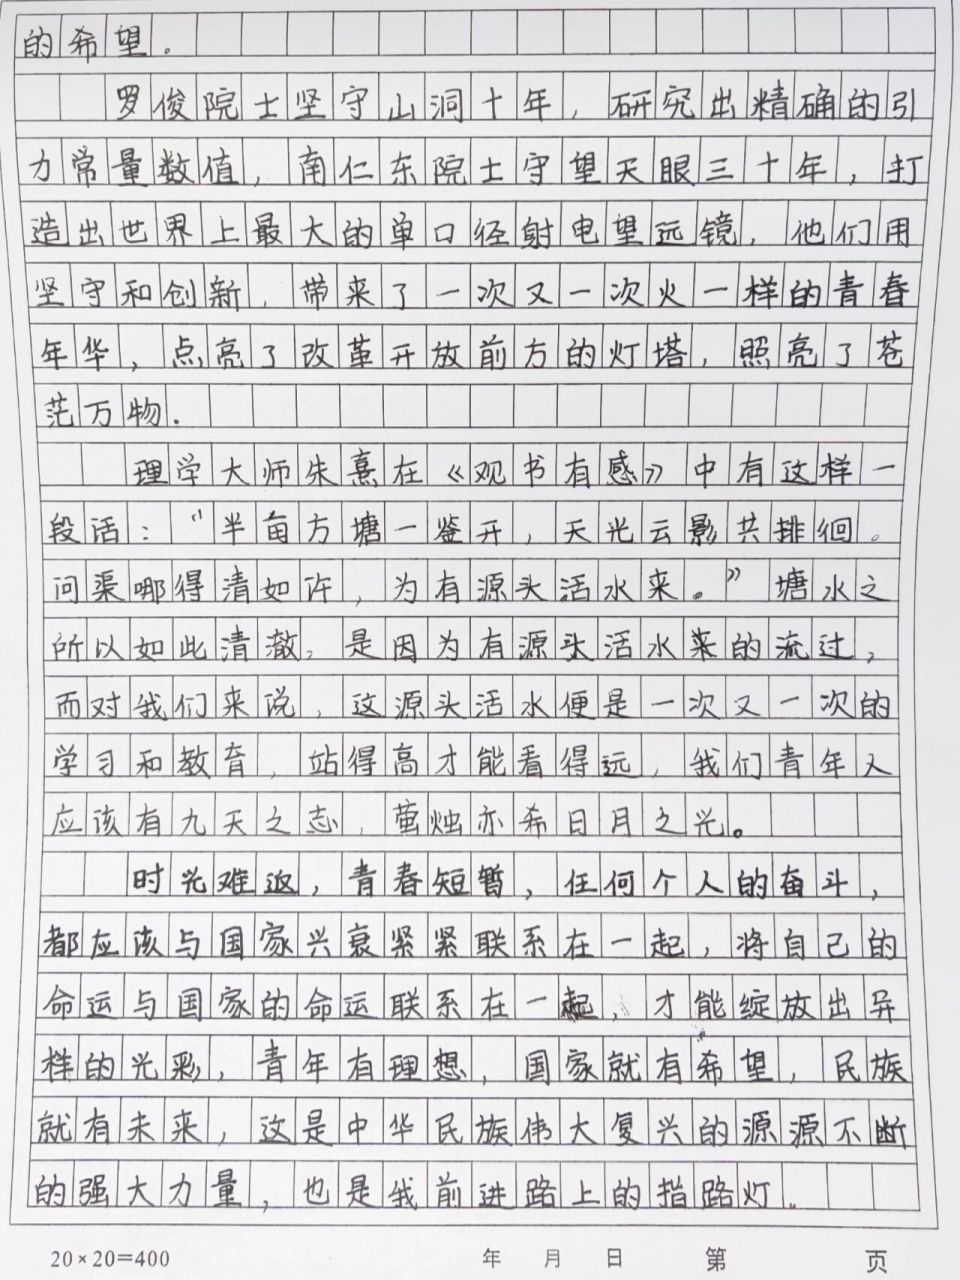 的希望。
罗俊院士坚守山洞十年，研究出精确的引
力常量数值，南仁东院士守望天眼三十年，打
造出世界上最大的单口径射电望远镜，他们用
坚守和创新，带来了一次又一次火一样的青春
年华，点亮了改革开放前方的灯塔，照亮了苍
茫万物.
理学大师朱熹在《观书有感》中有这样一
段活：“半亩方塘一鉴开，天光云影共排徊。
问渠哪得清如许，为有源头活水来。”塘水之
所以如此清澈，是因为有源头活水来的流过，
而对我们来说，这源头活水便是一次又一次的
学习和教育，站得高才能看得远，我们青年人
应该有九天之志，萤烛亦希日月之光。
时光难返，青春短暂，任何个人的奋斗，
都应该与国家兴衰紧紧联系在一起，将自己的
命运与国家的命运联系在一起，才能绽放出异
样的光彩，青年有理想，国家就有希望，民族
就有未来，这是中华民族伟大复兴的源源不断
的强大力量，也是我前进路上的指路灯.
20×20=400 年 月 日 第 页